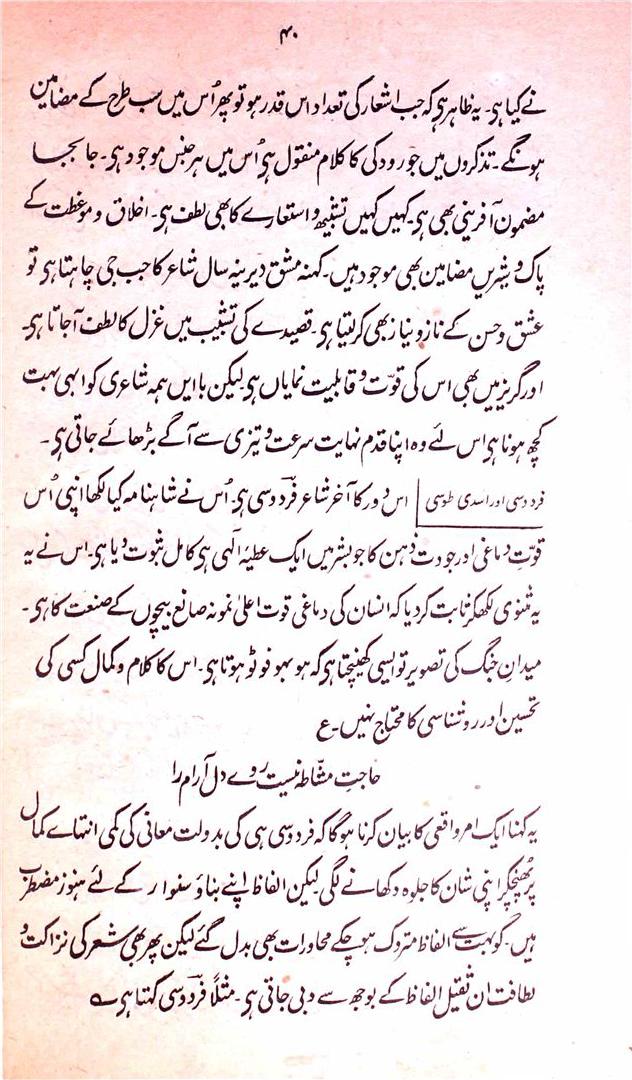 ۴۰
نے کیا ہی۔ یہ ظاہر ہی کہ جب اشعار کی تعداد اس قدر ہو تو پھر اُس میں سب طرح کے مضامین
ہونگے۔ تذکروں میں جو رودکی کا کلام منقول ہی اُس میں ہر جنس موجود ہی۔ جا بجا
مضمون آفرینی بھی ہی۔ کہیں کہیں تشبیہ و استعارے کا بھی لطف ہی۔ اخلاق و موعظت کے
پاک و شیریں مضامین بھی موجود ہیں۔ کہنہ مشق دیرینہ سال شاعر کا جب جی چاہتا ہی تو
عشق و حسن کے ناز و نیاز بھی کر لیتا ہی۔ قصیدے کی تشبیب میں غزل کا لطف آ جاتا ہی۔
اور گریز میں بھی اس کی قوّت و قابلیت نمایاں ہی لیکن با ایں ہمہ شاعری کو ابھی بہت
کچھ ہونا ہی اس لئے وہ اپنا قدم نہایت سرعت و تیزی سے آگے بڑھائے جاتی ہی۔
فردوسی اور اسدی طوسی
اس دور کا آخر شاعر فردوسی ہی۔ اُس نے شاہنامہ کیا لکھا اپنی اُس
قوّتِ دماغی اور جودت ذہن کا جو بشر میں ایک عطیۂ الٰہی ہی کامل ثبوت دیا ہی۔ اس نے یہ
یہ مثنوی لکھکر ثابت کر دیا کہ انسان کی دماغی قوت اعلیٰ نمونہ صانع بیچوں کے صنعت کا ہی۔
میدانِ جنگ کی تصویر تو ایسی کھینچتا ہی کہ ہو بہو فوٹو ہوتا ہی۔ اس کا کلام و کمال کسی کی
تحسین اور روشناسی کا محتاج نہیں۔ ع
حاجتِ مشّاطہ نیست روے دل آرام را
یہ کہنا ایک امر واقعی کا بیان کرنا ہوگا کہ فردوسی ہی کی بدولت معانی کی کمی انتہاے کمال
پر پہنچکر اپنی شان کا جلوہ دکھانے لگی لیکن الفاظ اپنے بناؤ سنوار کے لئے ہنوز مضطرب
ہیں۔ گو بہت سے الفاظ متروک ہو چکے محاورات بھی بدل گئے لیکن پھر بھی شعر کی نزاکت و
لطافت ان ثقیل الفاظ کے بوجھ سے دبی جاتی ہی۔ مثلاً فردوسی کہتا ہی ؎